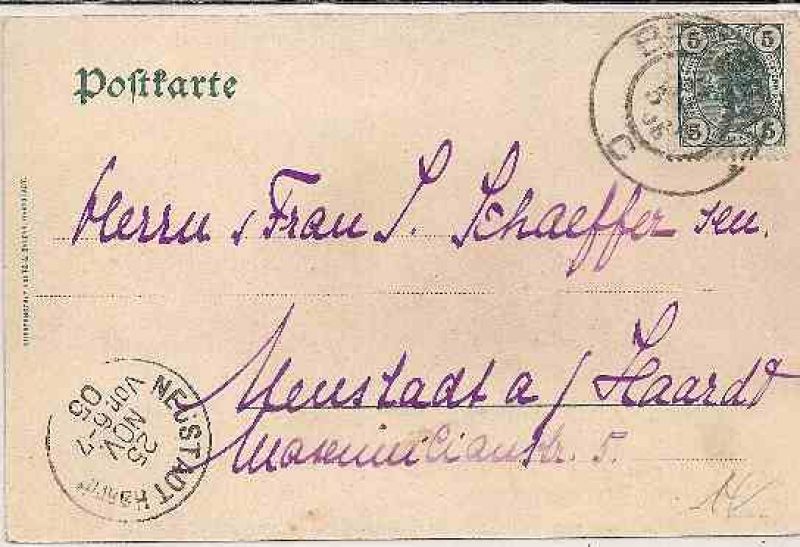 Postkarte
5 5
5 5
Herrn, Frau J. Schaeffer sen.
Neustadt a/Haardt
Maximilianstr. 5.
NEUSTADT HAARDT
25
NOV
Vor. 6-7
05
C